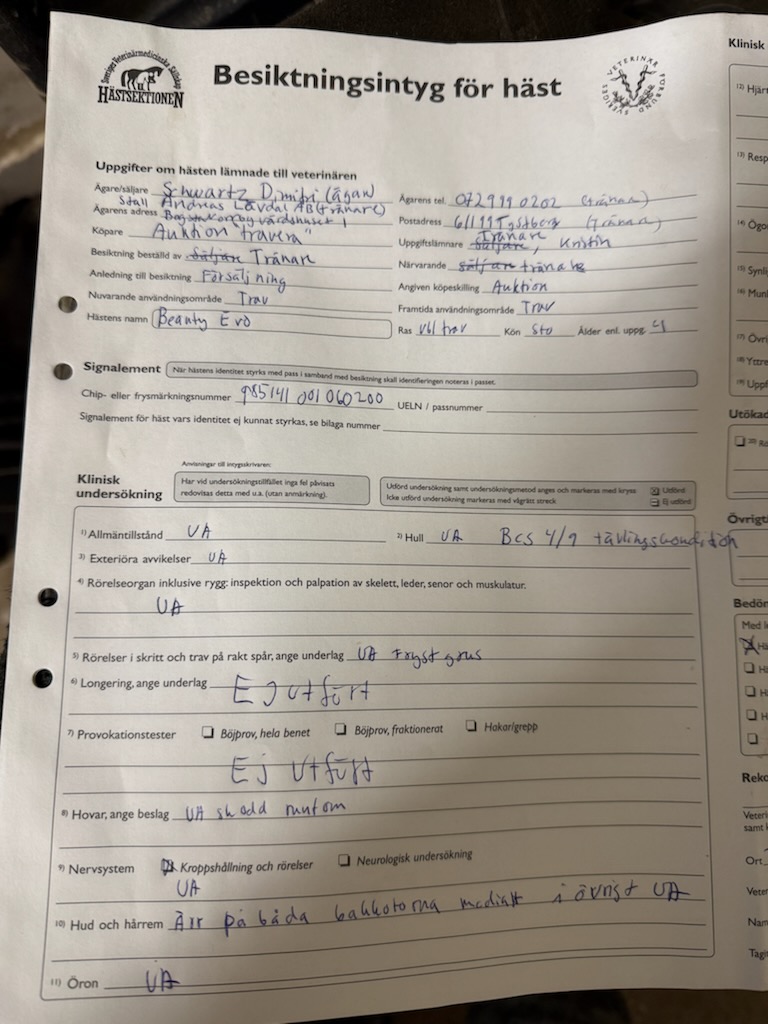 Sveriges Veterinärmedicinska Sällskap
HÄSTSEKTIONEN
Besiktningsintyg för häst
SVERIGES VETERINÄRFÖRBUND
Uppgifter om hästen lämnade till veterinären
Ägare/säljare Schwartz Dimitri (ägare)
Stall Andreas Lövdal AB (tränare)
Ägarens tel. 0729990202 (tränare)
Ägarens adress värdshuset 1
Postadress 61199 Tystberga (Tränare)
Köpare Auktion "travera"
Uppgiftslämnare säljare, Tränare Kristin
Besiktning beställd av säljare Tränare
Närvarande säljare tränare
Anledning till besiktning Försäljning
Angiven köpeskilling Auktion
Nuvarande användningsområde Trav
Framtida användningsområde Trav
Hästens namn Beauty Evo
Ras vbl trav Kön Sto Ålder enl. uppg. 4
Signalement När hästens identitet styrks med pass i samband med besiktning skall identifieringen noteras i passet.
Chip- eller frysmärkningsnummer 985141 001 060200 UELN / passnummer
Signalement för häst vars identitet ej kunnat styrkas, se bilaga nummer
Anvisningar till intygsskrivaren:
Klinisk undersökning
Har vid undersökningstillfället inga fel påvisats
redovisas detta med u.a. (utan anmärkning).
Utförd undersökning samt undersökningsmetod anges och markeras med kryss Utförd
Icke utförd undersökning markeras med vågrätt streck Ej utförd
1) Allmäntillstånd UA
2) Hull UA BCS 4/9 tävlingskondition
3) Exteriöra avvikelser UA
4) Rörelseorgan inklusive rygg: inspektion och palpation av skelett, leder, senor och muskulatur.
UA
5) Rörelser i skritt och trav på rakt spår, ange underlag UA Fryst grus
6) Longering, ange underlag Ej utfört
7) Provokationstester Böjprov, hela benet Böjprov, fraktionerat Hakar/grepp
Ej utfört
8) Hovar, ange beslag UA skodd runtom
9) Nervsystem Kroppshållning och rörelser Neurologisk undersökning
UA
10) Hud och hårrem Ärr på båda bakkotorna medialt i övrigt UA
11) Öron UA
Klinisk
12) Hjär
13) Resp
14) Ögo
15) Synli
16) Mun
17) Övri
18) Yttre
19) Uppf
Utökad
20) Rö
Övrigt
Bedöm
Med le
Hä
H
H
H
Reko
Veteri
samt k
Ort
Veter
Nam
Tagit